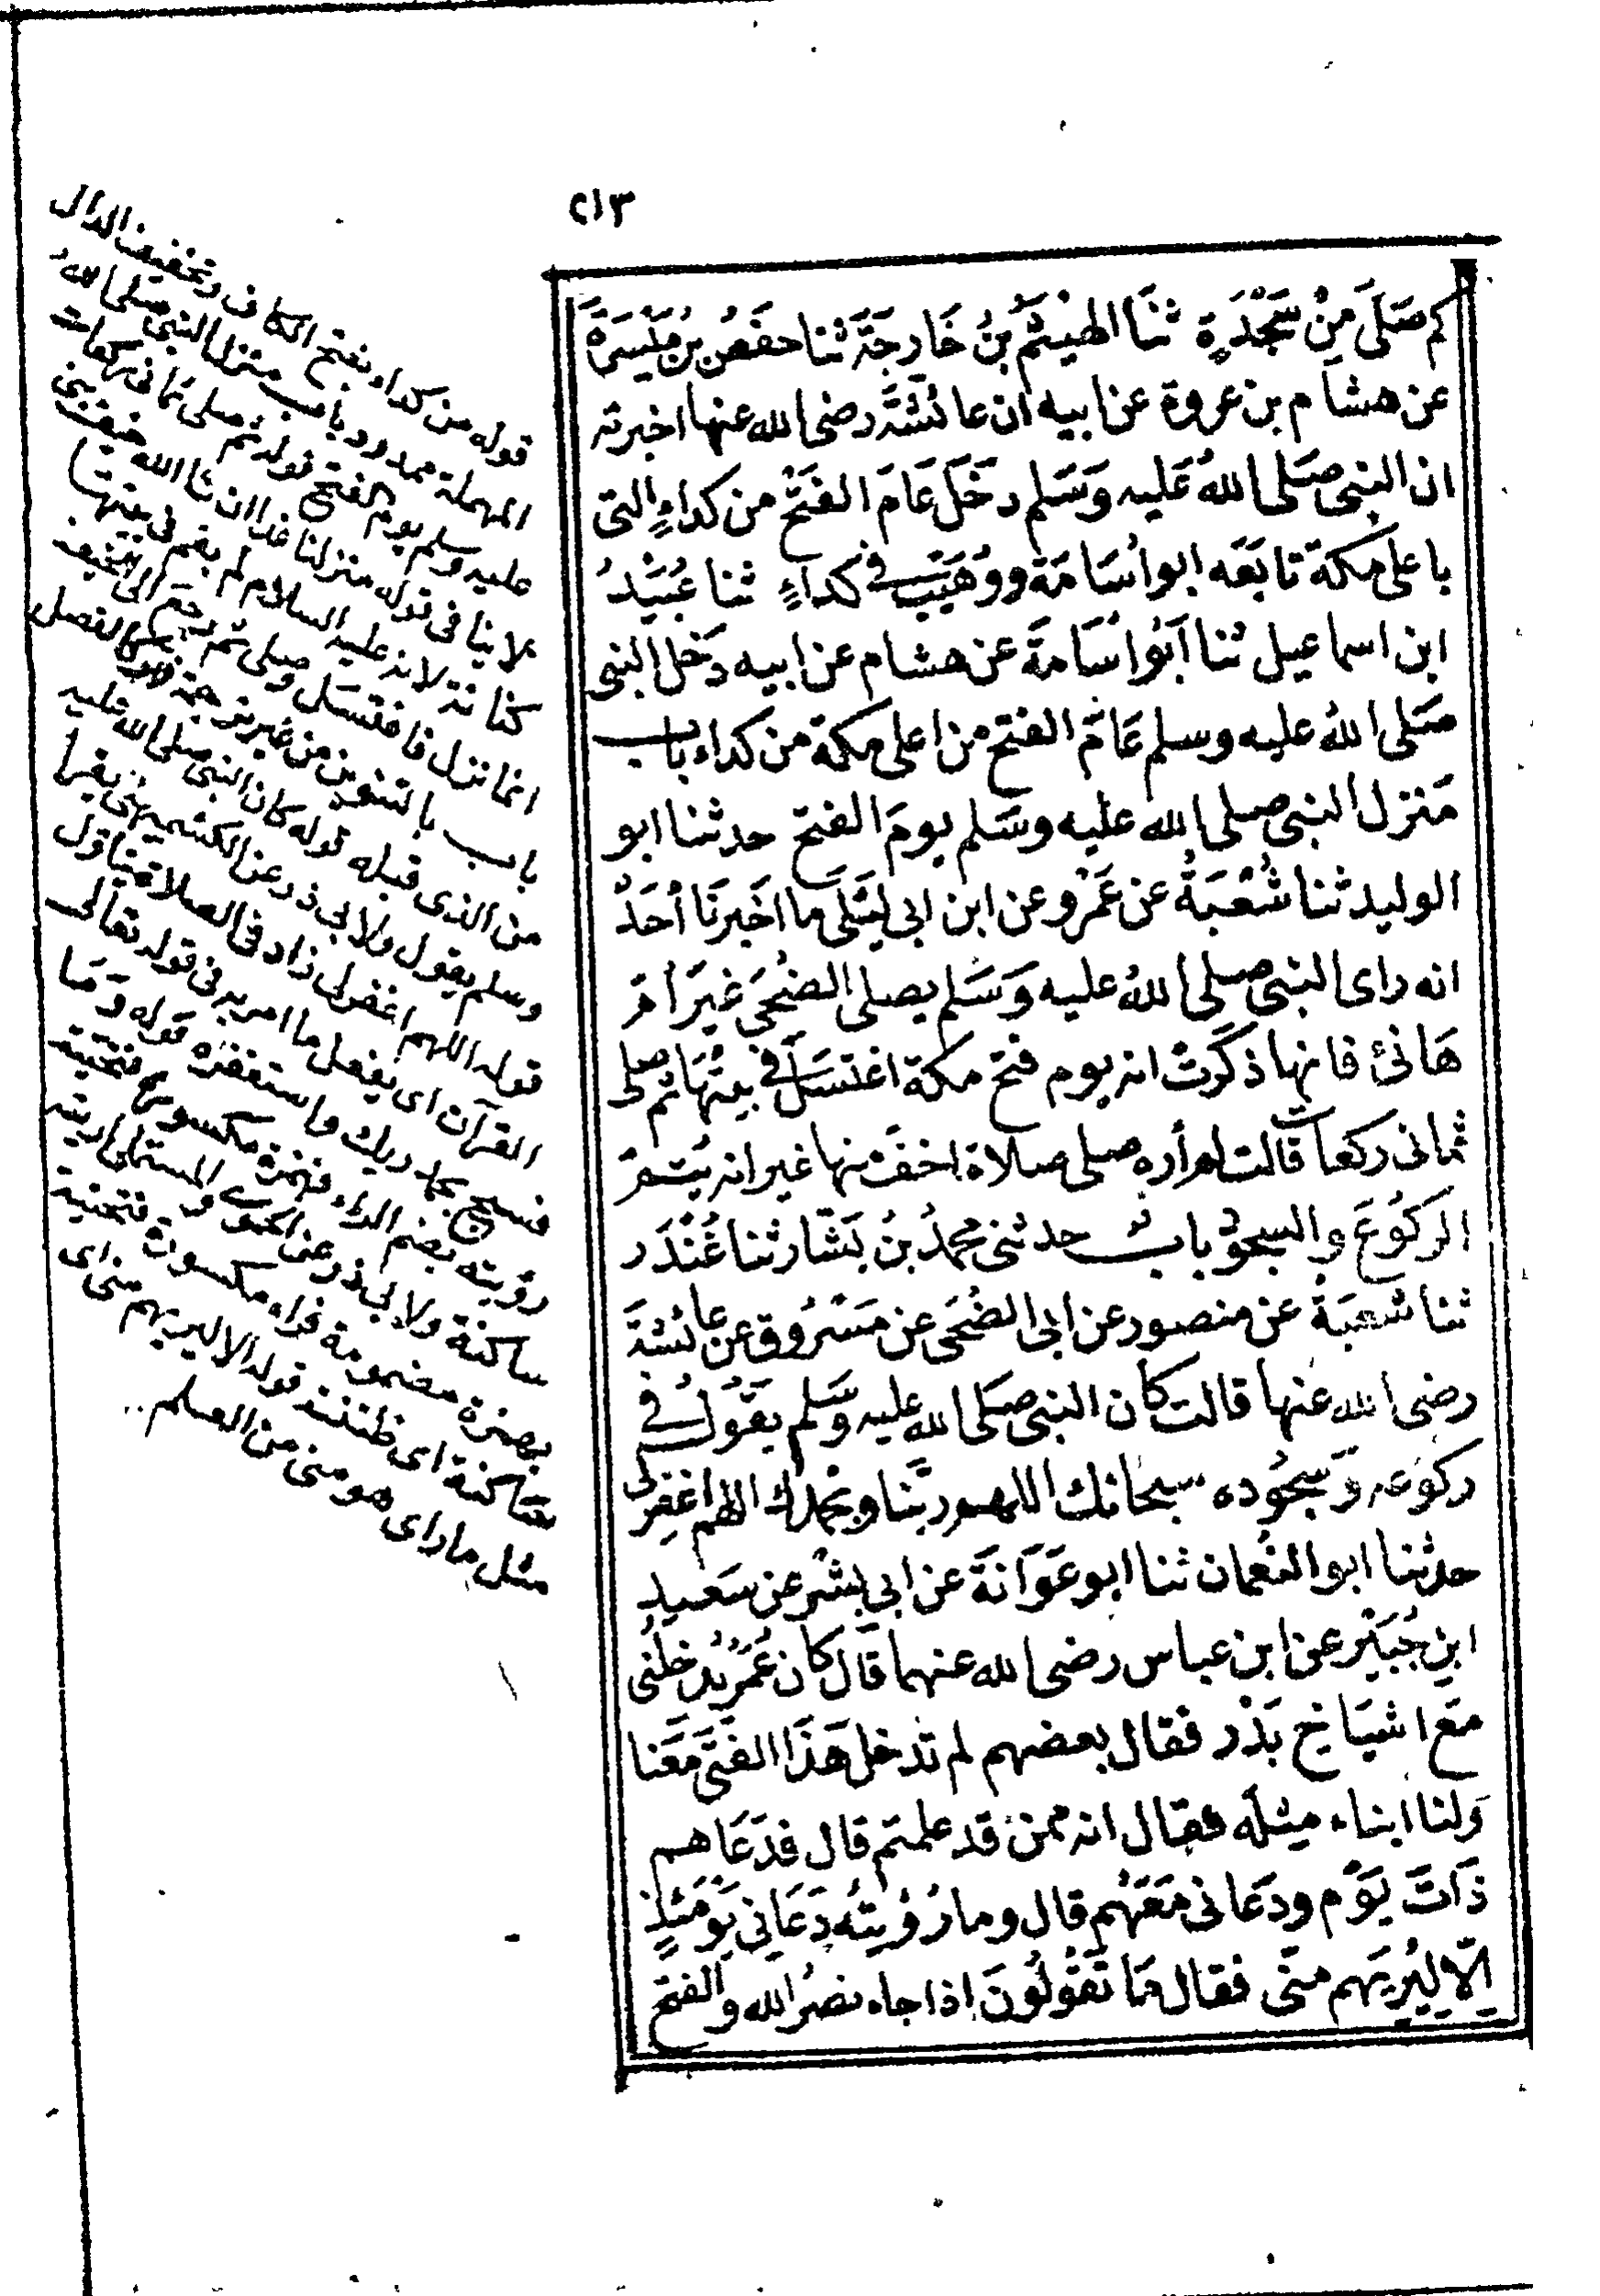 ٢١٣
كم صَلَّى مِنْ سَجْدَةٍ ثنَا الهيْثَمُ بنُ خَارِجَةَ ثنا حفَصُ بن مَيْسَرَةَ
عن هشام بن عروة عن ابيه ان عائشَةَ رضى الله عنها اخبرته
ان النبى صَلى اللهُ عَليه وَسَلم دخَلَ عَامَ الفَتْح من كداءٍ التى
باعلى مكة تابَعَه ابو اُسَامَة ووُهَيْب فى كداءٍ ثنا عُبَيْدُ
ابن اسماعيل ثنا اَبُو اُسَامَةَ عن هشام عن ابيه دَخَل النبى
صَلى اللهُ عليه وسلم عَامَ الفتح من اعلى مكة من كداء باب
مَنزل النبى صلى الله عليه وسَلم يومَ الفتح حدثنا ابو
الوليد ثنا شُعْبَةُ عن عَمْرو عن ابن ابى ليَلَى ما اخَبرنَا أحَدٌ
انه راى النبى صلى اللهُ عليه وَسَلم يصلى الضُحَى غيَر أمّ
هَانئ فانها ذكَرتْ انه يوم فتح مكة اغتسَل فى بيتهَا ثم صلى
ثمانى ركعات قالت لم أره صلى صلاة اخفّ منها غير انه يُتمّ
الركُوعَ والسجود باب حدثنى محمدُ بنُ بَشّار ثنا غُنْدَر
ثنا شعبَةُ عن منصور عن ابى الضُحَى عن مَسْرُوق عن عائشة
رضى الله عنها قالت كان النبى صَلى الله عليه وسَلم يقَولُ فى
ركوعه وَسجُوده سبحانك اللهم ربَّنا وبحمدك اللهم اغفِرلى
حدثنا ابو النعُمان ثنا ابو عَوَانَةَ عن ابى بشْر عن سَعيد
ابنِ جُبَيْر عن ابن عباس رضى الله عنهما قال كان عُمَرُ يُدخلُنى
مَعَ اشيَاخ بَدْر فقال بعضهم لم تدخل هَذَا الفَتَى مَعَنا
وَلنا ابناء مِثلَه فقال انه ممن قد علمتم قال فدَعَاهم
ذَاتَ يَوْم ودَعانى مَعَهُم قال وما رُؤيتُه دَعَانى يَوْمَئذٍ
اِلّا لِيُريَهم منّى فقال مَا تَقُولُونَ اذا جاء نصرُ الله والفتح
قوله من كداء بفتح الكاف وتخفيف الدال
المهملة ممدود باب منزل النبى صلى الله
عليه وسلم يوم الفتح قوله ثم صلى ثمانى ركعات
لا ينافى قوله منزلنا غدا ان شا الله خيف بنى
كنانة لانه عليه السلام لم يقم فى بيتها
انما نزل فاغتسل وصلى ثم رجع الى الخيف
باب بالتنوين من غير ترجمة فهو كالفصل
من الذى قبله قوله كان النبى صلى الله عليه
وسلم يقول ولابى ذر عن الكشميهنى يقرا
قوله اللهم اغفرلى زاد فى الصلاة يتاول
القرآن اى يفعل ما امر به فى قوله تعالى
فسبح بحمد ربك واستغفره قوله وَمَا
رؤيته بضم الراء فهمزة مكسورة فتحتية
ساكنة ولابى ذر عن الحموى والمستملى اريته
بهمزة مضمومة فراء مكسورة فتحتية
ساكنة اى ظننته قوله الا ليريهم منى اى
مثل ما راى هو منى من العلم